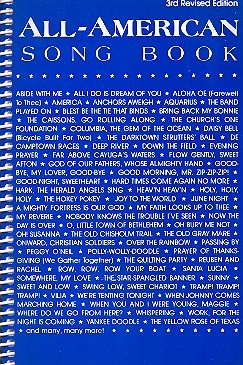 3rd Revised Edition
ALL-AMERICAN
SONG BOOK
ABIDE WITH ME ★ ALL I DO IS DREAM OF YOU ★ ALOHA OE (Farewell
To Thee) ★ AMERICA ★ ANCHORS AWEIGH ★ AQUARIUS ★ THE BAND
PLAYED ON ★ BLEST BE THE TIE THAT BINDS ★ BRING BACK MY BONNIE
★ THE CAISSONS GO ROLLING ALONG ★ THE CHURCH'S ONE
FOUNDATION ★ COLUMBIA, THE GEM OF THE OCEAN ★ DAISY BELL
(Bicycle Built For Two) ★ THE DARKTOWN STRUTTERS' BALL ★ DE
CAMPTOWN RACES ★ DEEP RIVER ★ DOWN THE FIELD ★ EVENING
PRAYER ★ FAR ABOVE CAYUGA'S WATERS ★ FLOW GENTLY, SWEET
AFTON ★ GOD OF OUR FATHERS, WHOSE ALMIGHTY HAND ★ GOOD-
BYE, MY LOVER, GOOD-BYE ★ GOOD MORNING, MR. ZIP-ZIP-ZIP! ★
GOOD NIGHT, SWEETHEART ★ HARD TIMES COME AGAIN NO MORE ★
HARK, THE HERALD ANGELS SING ★ HEAV'N HEAV'N ★ HOLY, HOLY,
HOLY ★ THE HOKEY POKEY ★ JOY TO THE WORLD ★ JUNE NIGHT ★
A MIGHTY FORTRESS IS OUR GOD ★ MY FAITH LOOKS UP TO THEE ★
MY REVERIE ★ NOBODY KNOWS THE TROUBLE I'VE SEEN ★ NOW THE
DAY IS OVER ★ O, LITTLE TOWN OF BETHLEHEM ★ OH BURY ME NOT ★
OH SUSANNA ★ THE OLD CHISHOLM TRAIL ★ THE OLD GRAY MARE ★
ONWARD, CHRISTIAN SOLDIERS ★ OVER THE RAINBOW ★ PASSING BY
★ PEGGY O'NEIL ★ POLLY-WOLLY-DOODLE ★ PRAYER OF THANKS-
GIVING (We Gather Together) ★ THE QUILTING PARTY ★ REUBEN AND
RACHEL ★ ROW, ROW, ROW YOUR BOAT ★ SANTA LUCIA ★
SOMEWHERE, MY LOVE ★ THE STAR-SPANGLED BANNER ★ SUNNY ★
SWEET AND LOW ★ SWING LOW, SWEET CHARIOT ★ TRAMP! TRAMP!
TRAMP! ★ VILIA ★ WE'RE TENTING TONIGHT ★ WHEN JOHNNY COMES
MARCHING HOME ★ WHEN YOU AND I WERE YOUNG, MAGGIE ★
WHERE DO WE GO FROM HERE? ★ WHISPERING ★ WORK, FOR THE
NIGHT IS COMING ★ YANKEE DOODLE ★ THE YELLOW ROSE OF TEXAS
★ and many, many more!